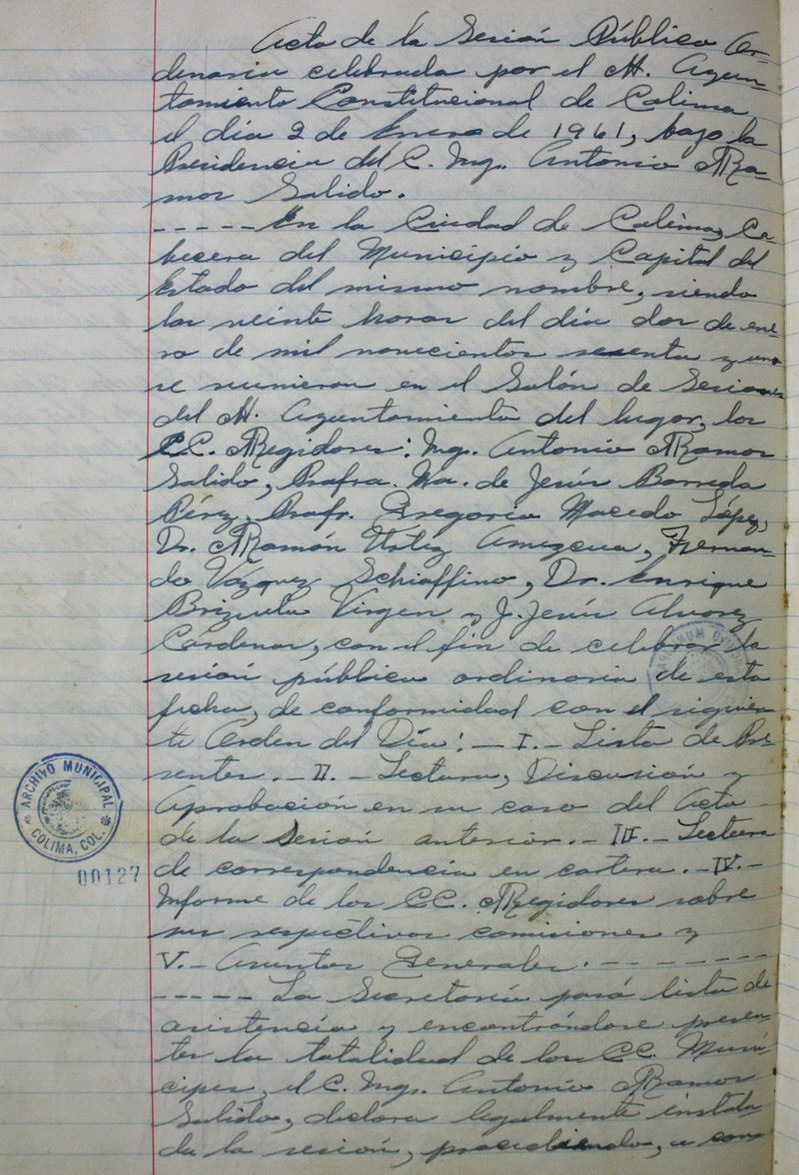 Acta de la Sesión Pública Or-
denaria celebrada por el H. Ayun-
tamiento Constitucional de Colima
el día 2 de Enero de 1961, bajo la
Presidencia del C. Ing. Antonio Ra-
mos Salido.
-----En la Ciudad de Colima, Ca-
becera del Municipio y Capital del
Estado del mismo nombre, siendo
las veinte horas del día dos de ene-
ro de mil novecientos sesenta y uno
se reunieron en el Salón de Sesiones
del H. Ayuntamiento del lugar, los
CC. Regidores: Ing. Antonio Ramos
Salido, Profra. Ma. de Jesús Barreda
Pérez, Profr. Gregorio Macedo López,
Dr. Ramón Ustiz Amezcua, Fernan-
do Vázquez Schiaffino, Dr. Enrique
Brizuela Virgen y J. Jesús Alvarez
Cárdenas, con el fin de celebrar la
sesión pública ordinaria de esta
fecha, de conformidad con el siguien-
te Orden del Día: - I.- Lista de Pre-
sentes. - II. - Lectura, Discusión y
Aprobación en su caso del Acta
de la Sesión anterior. - III - Lectura
de correspondencia en cartera. - IV. -
Informe de los CC. Regidores sobre
sus respectivas comisiones y
V. - Asuntos Generales. - - - - - - -
----- La Secretaría pasó lista de
asistencia y encontrándose presen-
tes la totalidad de los CC. Muní-
cipes, el C. Ing. Antonio Ramos
Salido, declara legalmente instala-
da la sesión, procediendo, a con-
ARCHIVO MUNICIPAL
COLIMA, COL.
00127